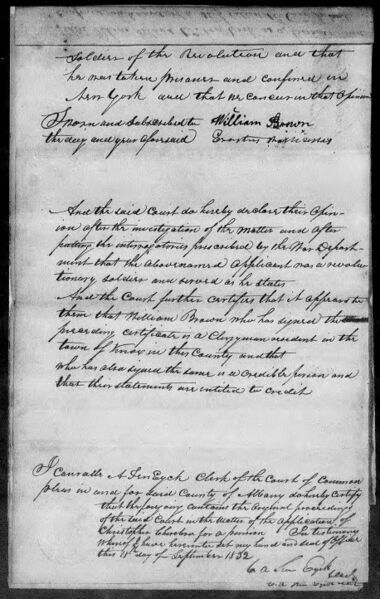 Soldier of the Revolution and that
he was taken Prisoner and confined in
New York and that we concur in that Opinion
Sworn and Subscribed to William Brown
the day and year aforesaid Erastus
And the said Court do hereby declare their Opin-
ion after the investigation of the matter and after
putting the interrogatories prescribed by the War Depart-
ment that the above named applicant was a revolu-
tionary soldier and served as he states
And the Court further certifies that it appears to
them that William Brown who has signed the
preceding certificate is a Clergyman resident in the
town of Knox in this County and that
who has also signed the same is a credible person and
that their statements are entitled to credit
I Conradt A Ten Eyck Clerk of the Court of Common
pleas in and for said County of Albany do hereby Certify
that the foregoing contains the original proceedings
of the said Court in the Matter of the Application of
Christopher for a pension In testimony
Whereof I have hereunto set my hand and Seal of Office
this 11th day of September 1832
C A Ten Eyck
Clerk